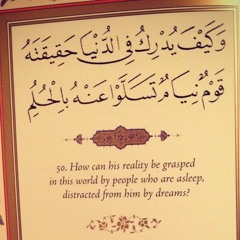 وَكَيْفَ يُدْرِكُ فِي الدُّنْيَا حَقِيقَتَهُ
قَوْمٌ نِيَامٌ تَسَلَّوْا عَنْهُ بِالْحُلُمِ
50. How can his reality be grasped
in this world by people who are asleep,
distracted from him by dreams?